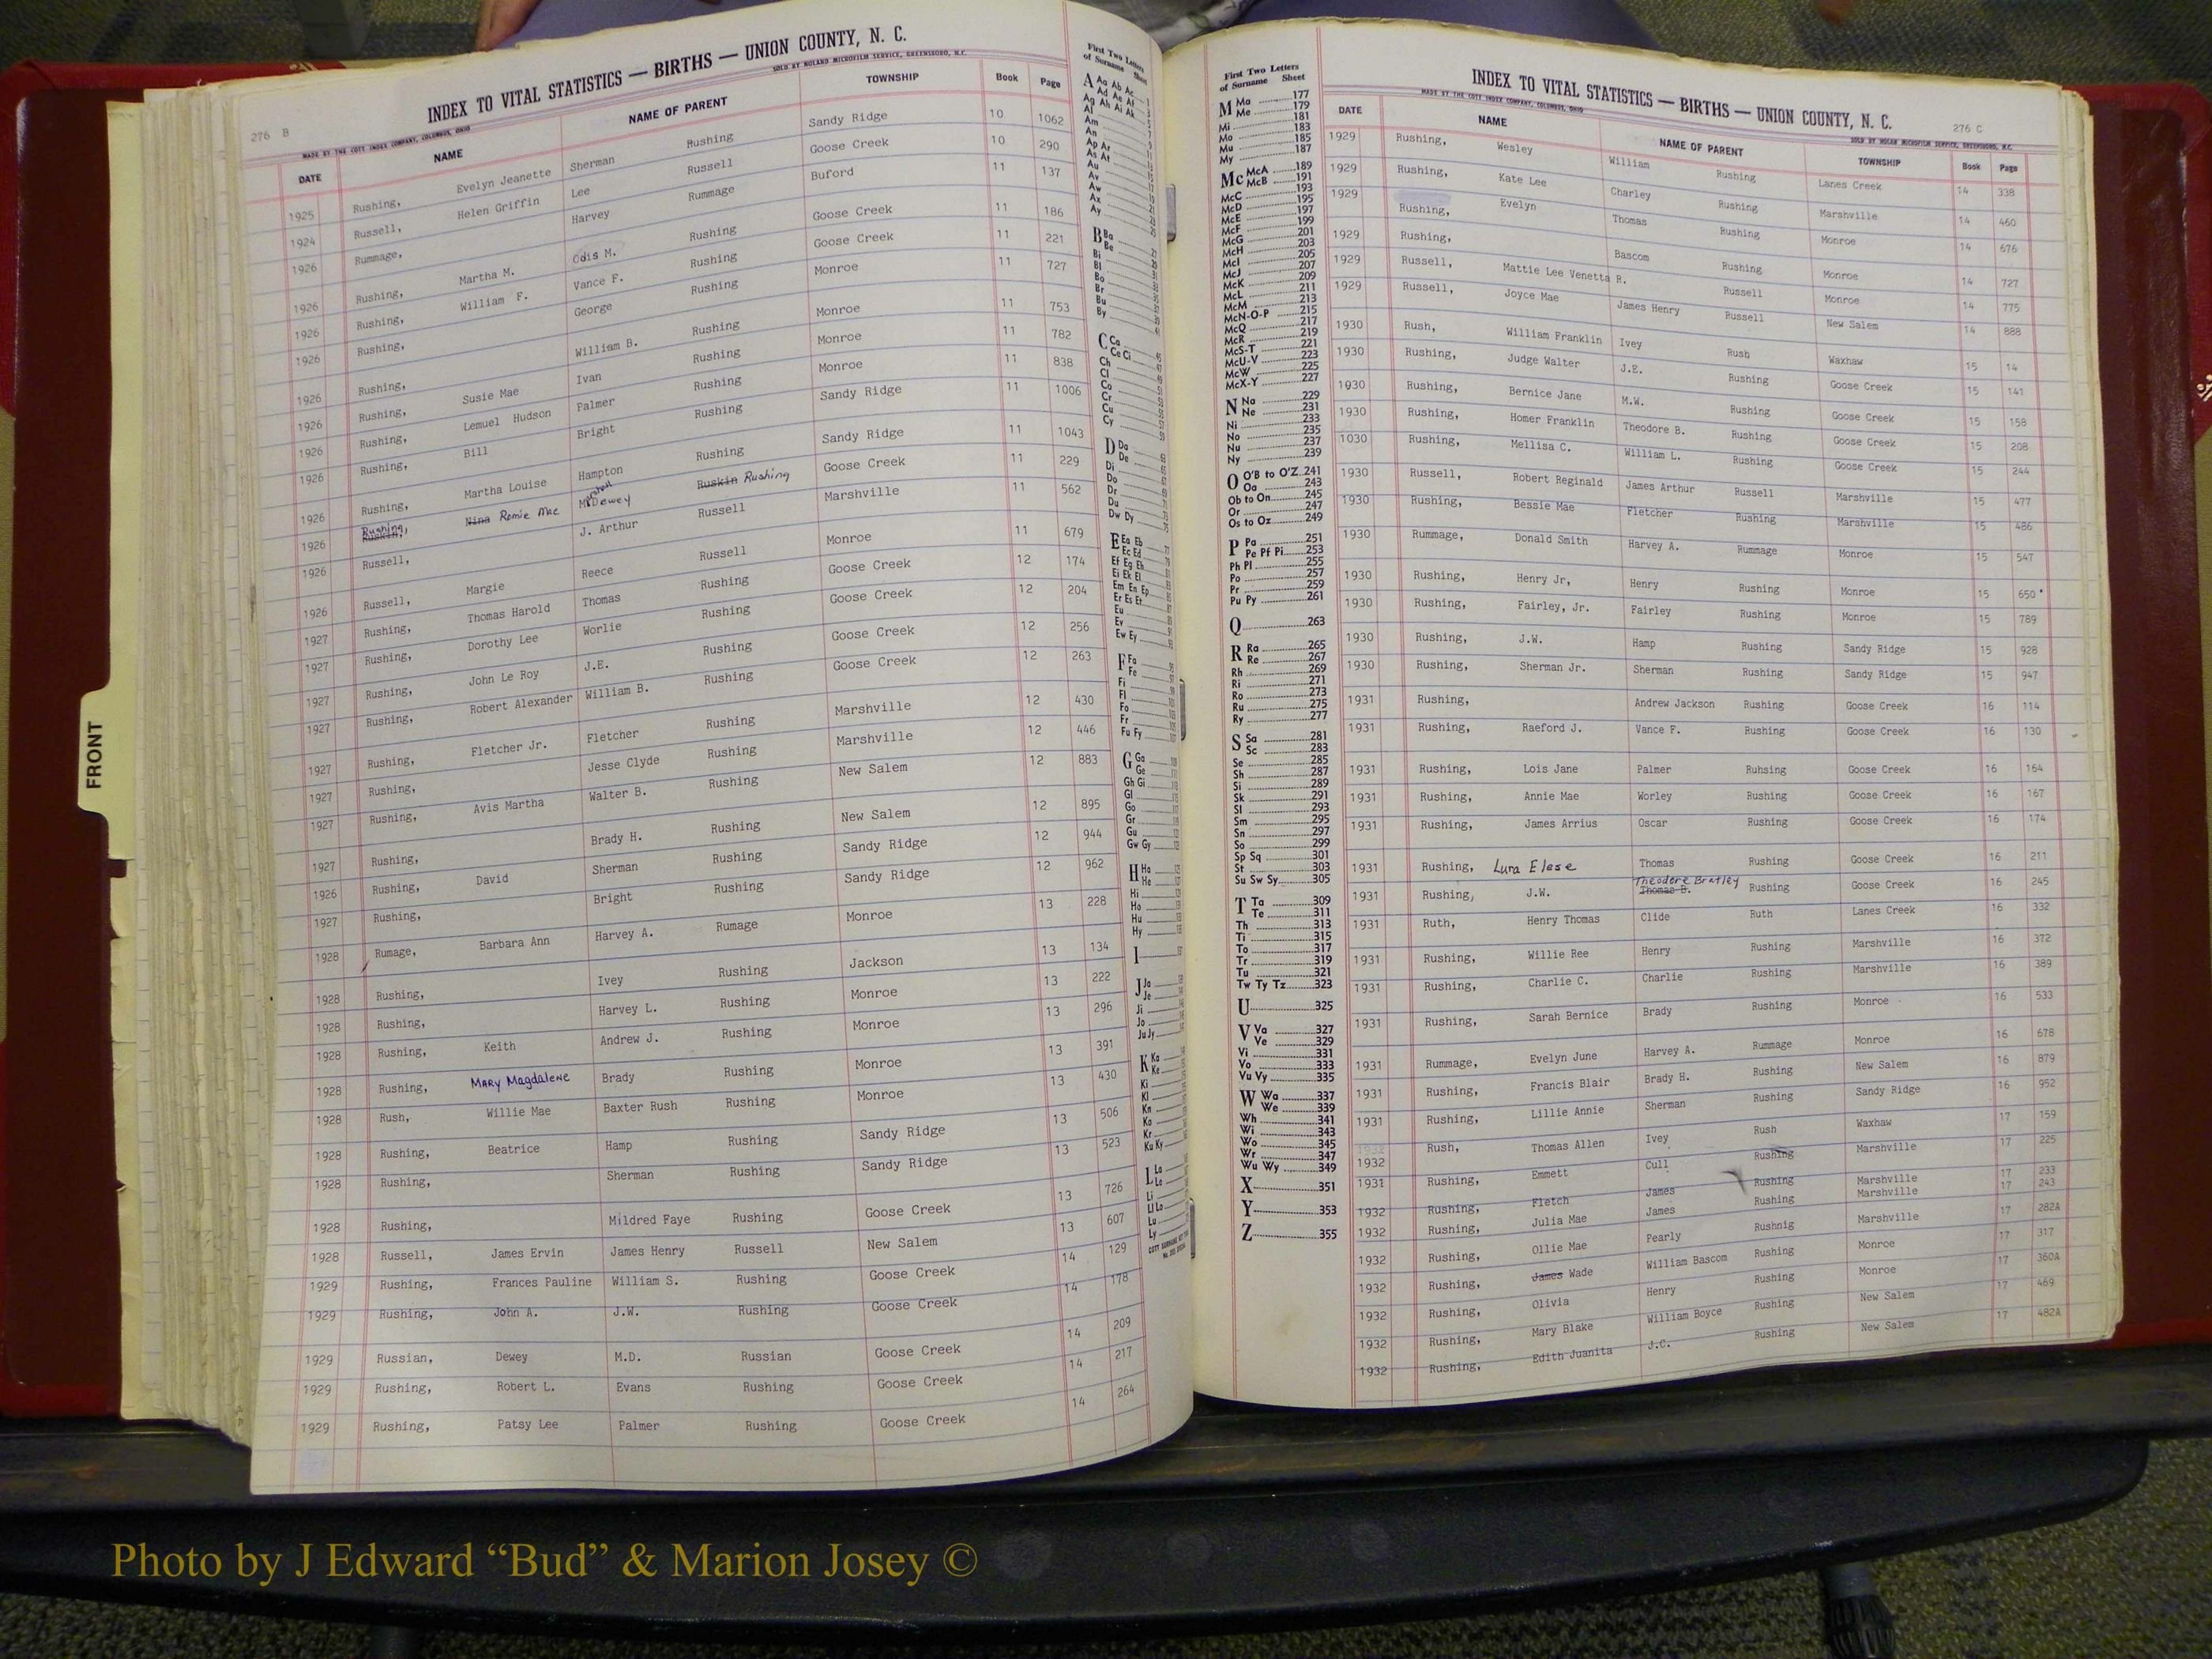 276 B
INDEX TO VITAL STATISTICS — BIRTHS — UNION COUNTY, N. C.
MADE BY THE COTT INDEX COMPANY, COLUMBUS, OHIO SOLD BY NOLAND MICROFILM SERVICE, GREENSBORO, N.C.
DATE NAME NAME OF PARENT TOWNSHIP Book Page
1925 Rushing, Evelyn Jeanette Sherman Rushing Sandy Ridge 10 1062
1924 Russell, Helen Griffin Lee Russell Goose Creek 10 290
1926 Rummage, Harvey Rummage Buford 11 137
1926 Rushing, Martha M. Odis M. Rushing Goose Creek 11 186
1926 Rushing, William F. Vance F. Rushing Goose Creek 11 221
1926 Rushing, George Rushing Monroe 11 727
1926 Rushing, William B. Rushing Monroe 11 753
1926 Rushing, Susie Mae Ivan Rushing Monroe 11 782
1926 Rushing, Lemuel Hudson Palmer Rushing Monroe 11 838
1926 Rushing, Bill Bright Rushing Sandy Ridge 11 1006
1926 Rushing, Martha Louise Hampton Rushing Sandy Ridge 11 1043
1926 Rushing, Ruskin, Nina Romie Mae Dewey Ruskin Rushing Goose Creek 11 229
1926 Russell, J. Arthur Russell Marshville 11 562
1926 Russell, Margie Reece Russell Monroe 11 679
1927 Rushing, Thomas Harold Thomas Rushing Goose Creek 12 174
1927 Rushing, Dorothy Lee Worlie Rushing Goose Creek 12 204
1927 Rushing, John Le Roy J.E. Rushing Goose Creek 12 256
1927 Rushing, Robert Alexander William B. Rushing Goose Creek 12 263
1927 Rushing, Fletcher Jr. Fletcher Rushing Marshville 12 430
1927 Rushing, Jesse Clyde Rushing Marshville 12 446
1927 Rushing, Avis Martha Walter B. Rushing New Salem 12 883
1927 Rushing, Brady H. Rushing New Salem 12 895
1926 Rushing, David Sherman Rushing Sandy Ridge 12 944
1927 Rushing, Bright Rushing Sandy Ridge 12 962
1928 Rumage, Barbara Ann Harvey A. Rumage Monroe 13 228
1928 Rushing, Ivey Rushing Jackson 13 134
1928 Rushing, Harvey L. Rushing Monroe 13 222
1928 Rushing, Keith Andrew J. Rushing Monroe 13 296
1928 Rushing, Mary Magdalene Brady Rushing Monroe 13 391
1928 Rush, Willie Mae Baxter Rush Rushing Monroe 13 430
1928 Rushing, Beatrice Hamp Rushing Sandy Ridge 13 506
1928 Rushing, Sherman Rushing Sandy Ridge 13 523
1928 Rushing, Mildred Faye Rushing Goose Creek 13 726
1928 Russell, James Ervin James Henry Russell New Salem 13 607
1929 Rushing, Frances Pauline William S. Rushing Goose Creek 14 129
1929 Rushing, John A. J.W. Rushing Goose Creek 14 178
1929 Russian, Dewey M.D. Russian Goose Creek 14 209
1929 Rushing, Robert L. Evans Rushing Goose Creek 14 217
1929 Rushing, Patsy Lee Palmer Rushing Goose Creek 14 264
First Two Letters
of Surname Sheet
A Aa Ab Ac
Ad Ae Af
Ag Ah Ai Ak
Al
Am
An
Ap Ar
As At
Au
Av
Aw
Ax
Ay
B Ba
Be
Bi
Bl
Bo
Br
Bu
By
C Ca
Ce Ci
Ch
Cl
Co
Cr
Cu
Cy
D Da
De
Di
Do
Dr
Du
Dw Dy
E Ea Eb
Ec Ed
Ef Eg Eh
Ei Ek El
Em En Ep
Er Es Et
Eu
Ev
Ew Ey
F Fa
Fe
Fi
Fl
Fo
Fr
Fu Fy
G Ga
Ge
Gh Gi
Gl
Go
Gr
Gu
Gw Gy
H Ha
He
Hi
Ho
Hu
Hy
I
J Ja
Je
Ji
Jo
Ju Jy
K Ka
Ke
Ki
Kl
Kn
Ko
Kr
Ku Ky
L La
Le
Li
Ll Lo
Lu
Ly
First Two Letters
of Surname Sheet
M Ma 177
Me 179
Mi 181
Mo 183
Mu 185
My 187
Mc McA 189
McB 191
McC 193
McD 195
McE 197
McF 199
McG 201
McH 203
McI 205
McJ 207
McK 209
McL 211
McM 213
McN-O-P 215
McQ 217
McR 219
McS-T 221
McU-V 223
McW 225
McX-Y 227
N Na 229
Ne 231
Ni 233
No 235
Nu 237
Ny 239
O O'B to O'Z 241
Oa 243
Ob to On 245
Or 247
Os to Oz 249
P Pa 251
Pe Pf Pi 253
Ph Pl 255
Po 257
Pr 259
Pu Py 261
Q 263
R Ra 265
Re 267
Rh 269
Ri 271
Ro 273
Ru 275
Ry 277
S Sa 281
Sc 283
Se 285
Sh 287
Si 289
Sk 291
Sl 293
Sm 295
Sn 297
So 299
Sp Sq 301
St 303
Su Sw Sy 305
T Ta 309
Te 311
Th 313
Ti 315
To 317
Tr 319
Tu 321
Tw Ty Tz 323
U 325
V Va 327
Ve 329
Vi 331
Vo 333
Vu Vy 335
W Wa 337
We 339
Wh 341
Wi 343
Wo 345
Wr 347
Wu Wy 349
X 351
Y 353
Z 355
INDEX TO VITAL STATISTICS — BIRTHS — UNION COUNTY, N. C.
276 C
MADE BY THE COTT INDEX COMPANY, COLUMBUS, OHIO SOLD BY NOLAN MICROFILM SERVICE, GREENSBORO, N.C.
DATE NAME NAME OF PARENT TOWNSHIP Book Page
1929 Rushing, Wesley William Rushing Lanes Creek 14 338
1929 Rushing, Kate Lee Charley Rushing Marshville 14 460
1929 Rushing, Evelyn Thomas Rushing Monroe 14 676
1929 Rushing, Bascom Rushing Monroe 14 727
1929 Russell, Mattie Lee Venetta R. Russell Monroe 14 775
1929 Russell, Joyce Mae James Henry Russell New Salem 14 888
1930 Rush, William Franklin Ivey Rush Waxhaw 15 14
1930 Rushing, Judge Walter J.E. Rushing Goose Creek 15 141
1930 Rushing, Bernice Jane M.W. Rushing Goose Creek 15 158
1930 Rushing, Homer Franklin Theodore B. Rushing Goose Creek 15 208
1030 Rushing, Mellisa C. William L. Rushing Goose Creek 15 244
1930 Russell, Robert Reginald James Arthur Russell Marshville 15 477
1930 Rushing, Bessie Mae Fletcher Rushing Marshville 15 486
1930 Rummage, Donald Smith Harvey A. Rummage Monroe 15 547
1930 Rushing, Henry Jr, Henry Rushing Monroe 15 650
1930 Rushing, Fairley, Jr. Fairley Rushing Monroe 15 789
1930 Rushing, J.W. Hamp Rushing Sandy Ridge 15 928
1930 Rushing, Sherman Jr. Sherman Rushing Sandy Ridge 15 947
1931 Rushing, Andrew Jackson Rushing Goose Creek 16 114
1931 Rushing, Raeford J. Vance F. Rushing Goose Creek 16 130
1931 Rushing, Lois Jane Palmer Ruhsing Goose Creek 16 164
1931 Rushing, Annie Mae Worley Rushing Goose Creek 16 167
1931 Rushing, James Arrius Oscar Rushing Goose Creek 16 174
1931 Rushing, Lura Elese Thomas Rushing Goose Creek 16 211
1931 Rushing, J.W. Theodore Bratley Thomas B. Rushing Goose Creek 16 245
1931 Ruth, Henry Thomas Clide Ruth Lanes Creek 16 332
1931 Rushing, Willie Ree Henry Rushing Marshville 16 372
1931 Rushing, Charlie C. Charlie Rushing Marshville 16 389
1931 Rushing, Sarah Bernice Brady Rushing Monroe 16 533
1931 Rummage, Evelyn June Harvey A. Rummage Monroe 16 678
1931 Rushing, Francis Blair Brady H. Rushing New Salem 16 879
1931 Rushing, Lillie Annie Sherman Rushing Sandy Ridge 16 952
1932 Rush, Thomas Allen Ivey Rush Waxhaw 17 159
1931 Rushing, Emmett Cull Rushing Marshville 17 225
1932 Rushing, Fletch James Rushing Marshville 17 233
1932 Rushing, Julia Mae James Rushing Marshville 17 243
1932 Rushing, Ollie Mae Pearly Rushnig Marshville 17 282A
1932 Rushing, James Wade William Bascom Rushing Monroe 17 317
1932 Rushing, Olivia Henry Rushing Monroe 17 360A
1932 Rushing, Mary Blake William Boyce Rushing New Salem 17 469
1932 Rushing, Edith Juanita J.C. Rushing New Salem 17 482A
FRONT
Photo by J Edward “Bud” & Marion Josey ©